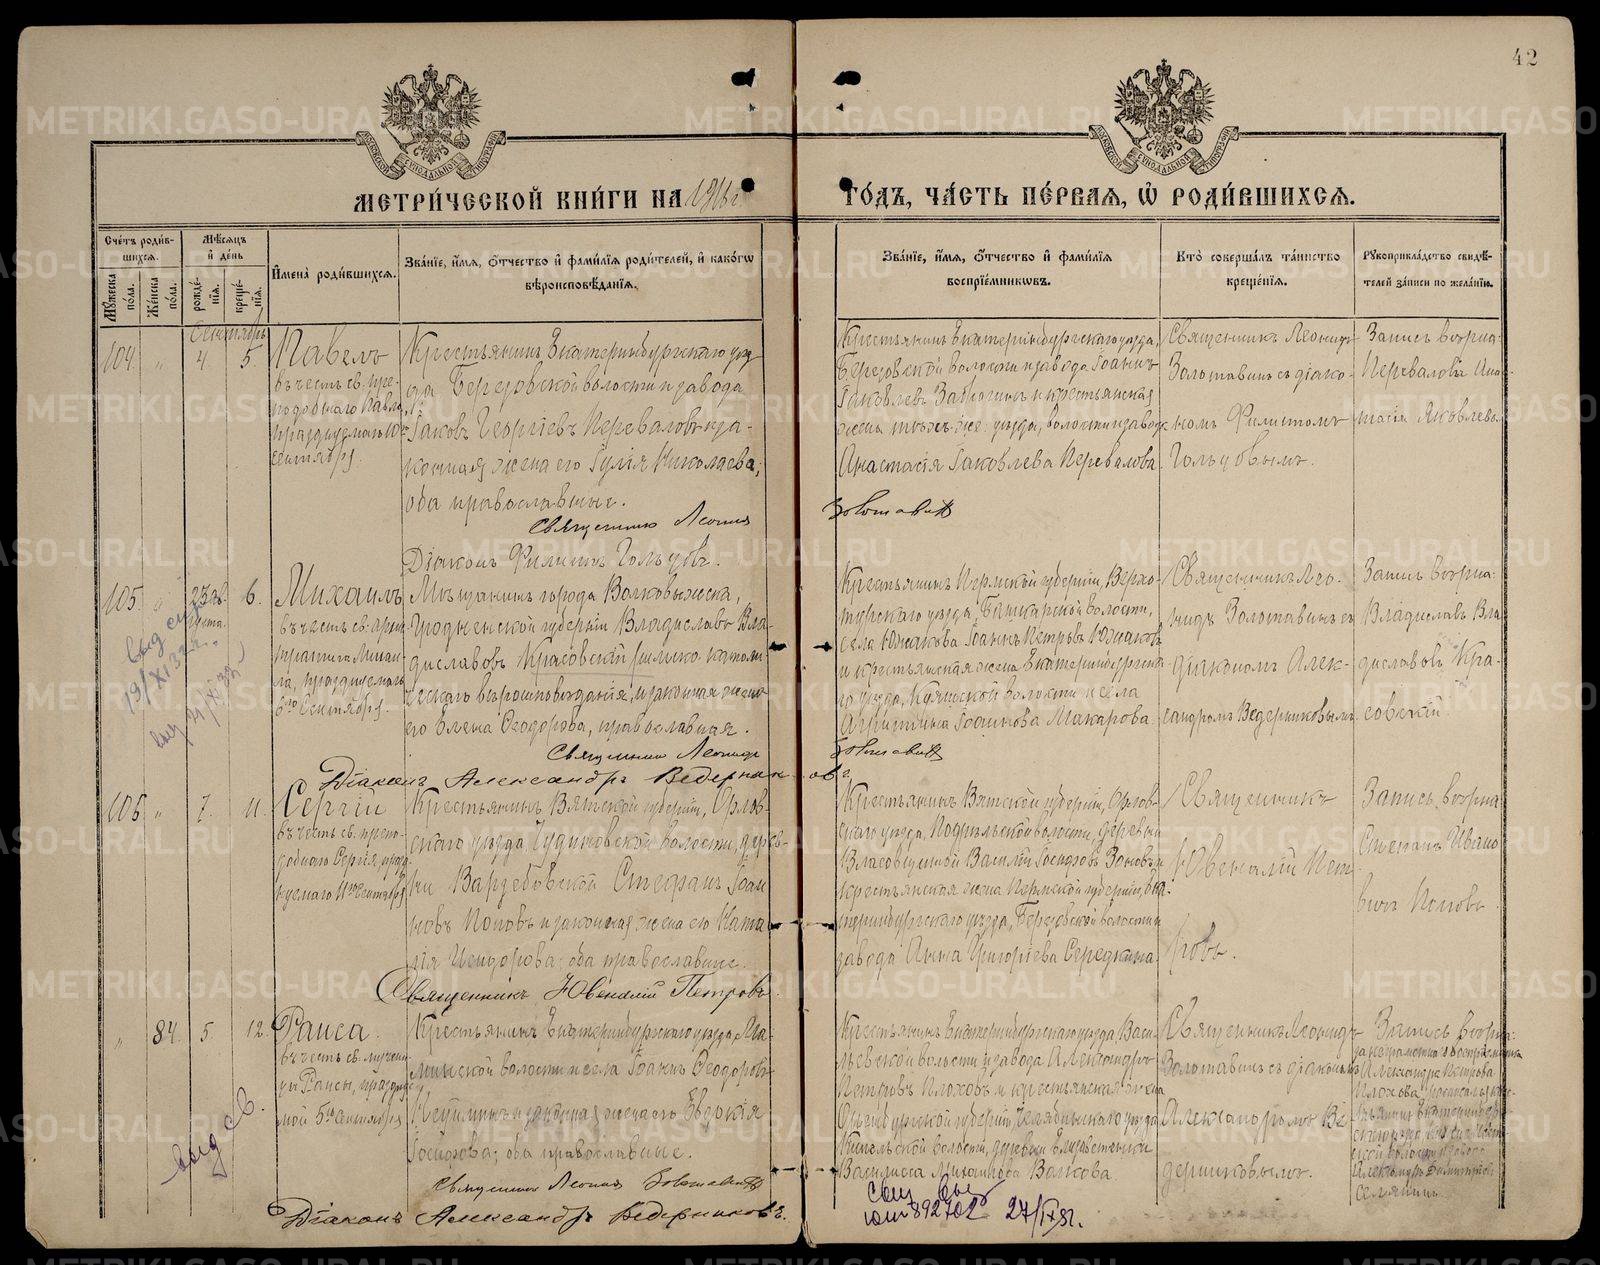 42
МЕТРИ́ЧЕСКОЙ КНИ́ГИ НА 1916 г ГО́ДЪ, ЧА́СТЬ ПЕ́РВАѦ, Ѡ҆ РОДИ́ВШИХСѦ.
Сче́тъ роди́в-
шихсѧ.
Мѹ́жеска по́ла.
Же́нска по́ла.
Мѣ́сѧцъ и҆ де́нь
рожде́-нїѧ.
креще́-нїѧ.
И҆мена̀ роди́вшихсѧ.
Зва́нїе, и҆́мѧ, ѻ҆́тчество и҆ фами́лїѧ роди́телей, и҆ како́гѡ
вѣроисповѣ́данїѧ.
Зва́нїе, и҆́мѧ, ѻ҆́тчество и҆ фами́лїѧ
воспрїе́мникѡвъ.
Кто̀ соверша́лъ та́инство
креще́нїѧ.
Рѹкоприкла́дство свидѣ́-
телей за́писи по жела́нїю.
Сентябрь
104. „ 4 5.
Павелъ
въ честь св. пре-
подобнаго Павла,
празднуемаго 10го
сентября.
Крестьянинъ Екатеринбургскаго уѣз-
да Березовской волости и завода
Іаковъ Георгіевъ Переваловъ и за-
конная жена его Іулія Николаева;
оба православные.
Священникъ Леонидъ Золотавинъ
Діаконъ Филиппъ Гольцовъ.
Крестьянинъ Екатеринбургскаго уѣзда,
Березовской волости и завода Іоаннъ
Іаковлевъ и крестьянская
жена тѣхъ-же: уѣзда, волости и завода
Анастасія Іаковлева Перевалова.
Священникъ Леонидъ
Золотавинъ съ діако-
номъ Филиппомъ
Гольцовымъ.
Запись вѣрна:
Перевалова Анас-
тасія Яковлева.
105. „ 25 Августа. 6.
Михаилъ
въ честь св. архи-
стратига Михаи-
ла, празднуемаго
6го Сентября.
Мѣщанинъ города Волковыжска,
Гродненской губерніи Владиславъ Вла-
диславовъ Красовскій римско-католи-
ческаго вѣроисповѣданія, и законная жена
его Елена Ѳеодорова, православная.
Священникъ Леонидъ Золотавинъ
Діаконъ Александръ Ведерниковъ.
Крестьянинъ Пермской губерніи, Верхо-
турскаго уѣзда, Башкарской волости,
села Южакова Іоаннъ Петровъ Южаковъ
и крестьянская жена Екатеринбургска-
го уѣзда, волости и села
Агриппина Іоаннова Макарова.
Священникъ Лео-
нидъ Золотавинъ съ
діакономъ Алек-
сандромъ Ведерниковымъ.
Запись вѣрна:
Владиславъ Вла-
диславовъ Кра-
совскій.
выд св
19/XI 32 г.
106 „ 7. 11.
Сергій
въ честь св. препо-
добнаго Сергія, празд-
нуемаго 11го Сентября
Крестьянинъ Вятской губерніи, Орлов-
скаго уѣзда, Чудиновской волости, дерев-
ни Варзебовской Стефанъ Іоан-
новъ Поповъ и законная жена его Ната-
лія; оба православные.
Священникъ Ювеналій Петровъ.
Крестьянинъ Вятской губерніи, Орлов-
скаго уѣзда, Подрѣльской волости, деревни
Василій Іосифовъ Зоновъ и
крестьянская жена Пермской губерніи, Ека-
теринбургскаго уѣзда, Березовской волости и
завода Анна Григоріева Середкина.
Священникъ
Ювеналій Пет-
ровъ.
Запись вѣрна:
Степанъ Ивано
вичъ Поповъ.
„ 84. 5. 12.
Раиса.
въ честь св. мучени-
цы Раисы, празднуе-
мой 5го сентября
Крестьянинъ Екатеринбургскаго уѣзда
волости и села Іоаннъ Ѳеодоровъ
и законная жена его Еверкія
Іосифова; оба православные.
Священникъ Леонидъ Золотавинъ
Діаконъ Александръ Ведерниковъ.
Крестьянинъ Екатеринбургскаго уѣзда, Васи-
льевской волости и завода Александръ
Петровъ Плоховъ и крестьянская жена
Оренбургской губерніи, Челябинскаго уѣзда,
волости, деревни
Василисса Михайлова Волкова.
Священникъ Леонидъ
Золотавинъ съ діакономъ
Александромъ Ве-
дерниковымъ.
Запись вѣрна:
выд св.
27/IX 32.
METRIKI.GASO-URAL.RU